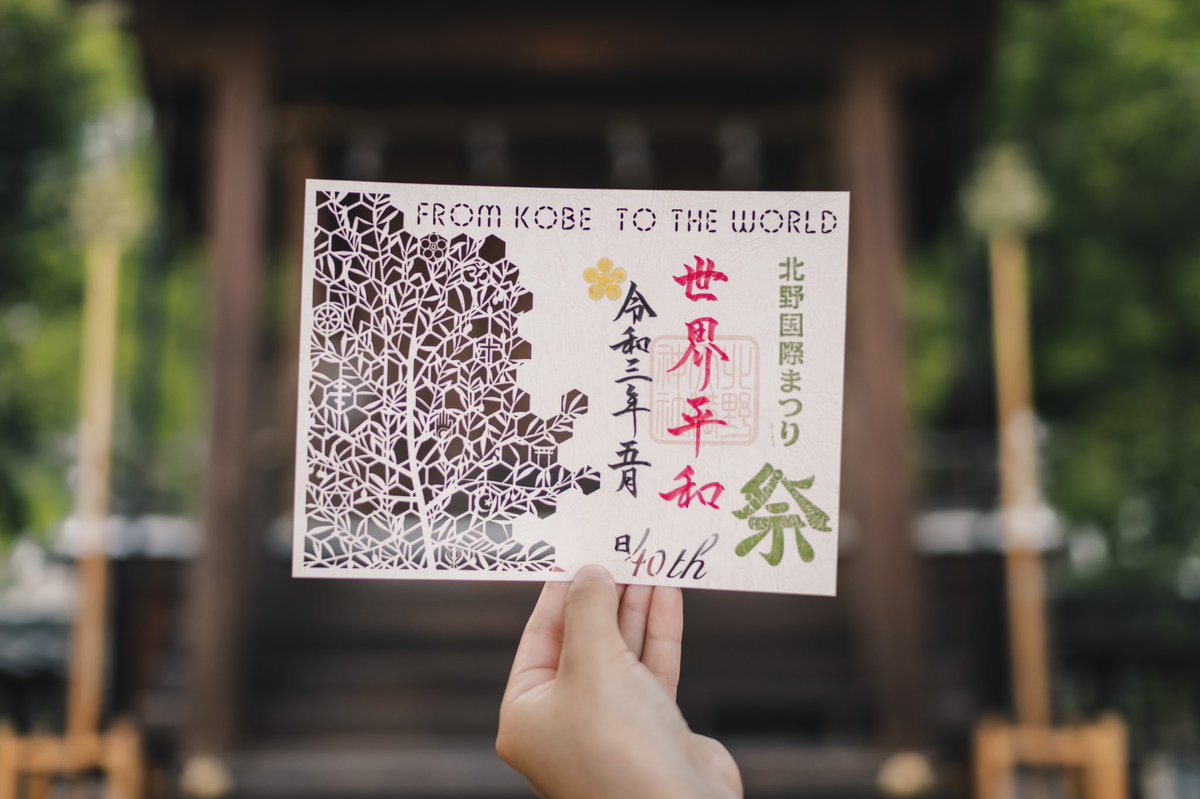 FROM KOBE TO THE WORLD
北野国際まつり
祭
世界平和
令和三年五月
日
40th